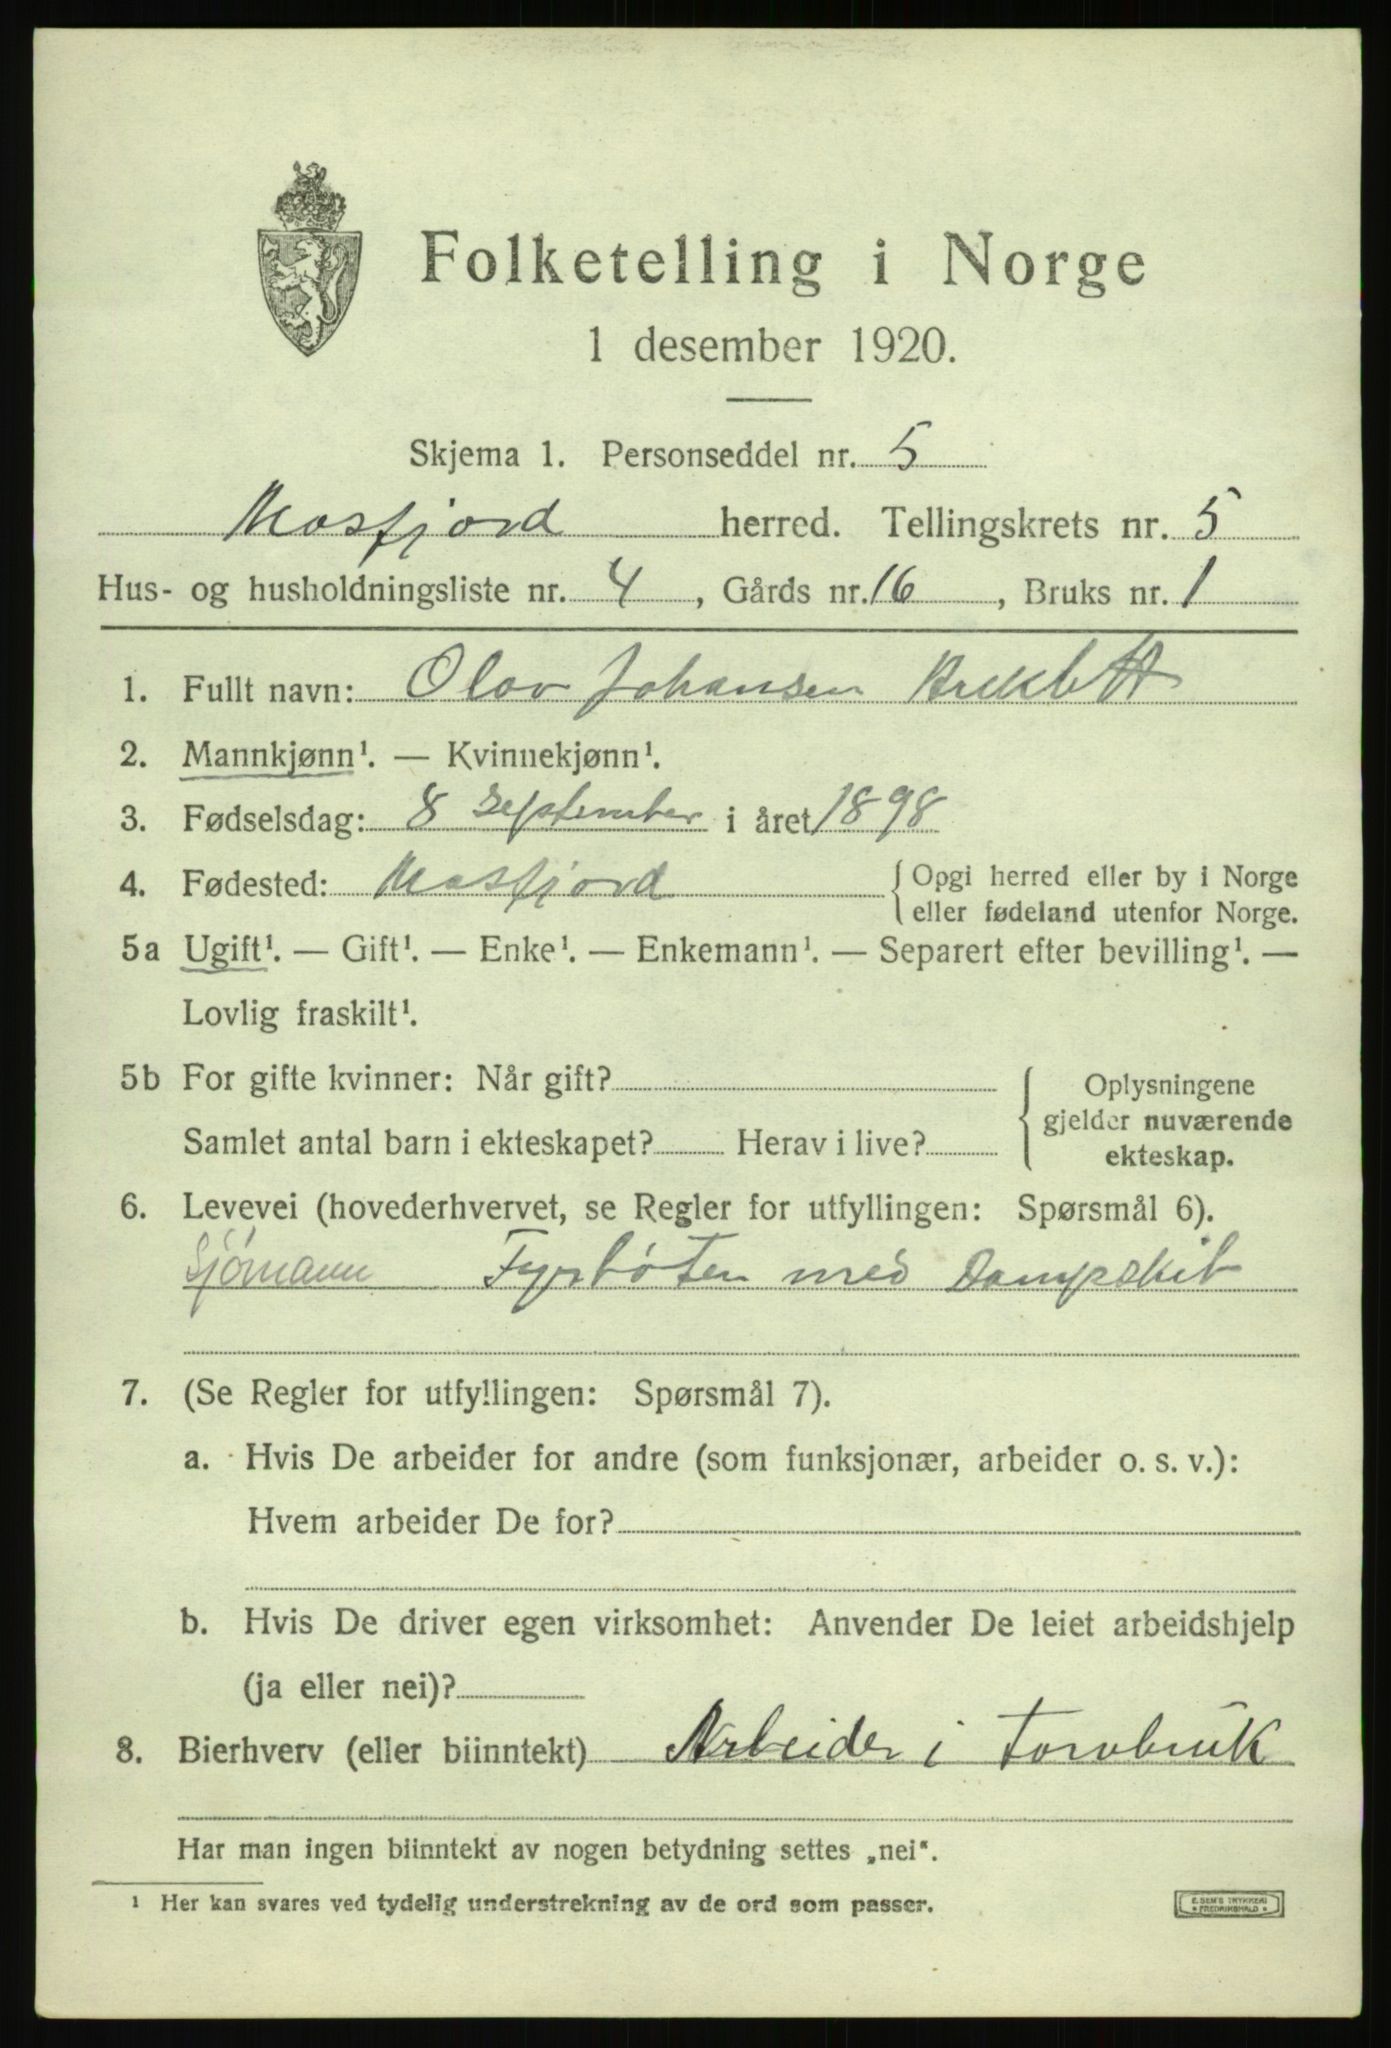 Folketelling i Norge
1 desember 1920.
Skjema 1. Personseddel nr. 5
Masfjord herred. Tellingskrets nr. 5
Hus- og husholdningsliste nr. 4, Gårds nr. 16, Bruks nr. 1
1. Fullt navn: Olav Johansen
2. Mannkjønn¹. — Kvinnekjønn¹.
3. Fødselsdag: 8 September i året 1898
4. Fødested: Masfjord { Opgi herred eller by i Norge
eller fødeland utenfor Norge.
5a Ugift¹. — Gift¹. — Enke¹. — Enkemann¹. — Separert efter bevilling¹. —
Lovlig fraskilt¹.
5b For gifte kvinner: Når gift?
Samlet antal barn i ekteskapet? Herav i live?
{ Oplysningene
gjelder nuværende
ekteskap.
6. Levevei (hovederhvervet, se Regler for utfyllingen: Spørsmål 6).
Sjømann Fyrbøter med Dampskib
7. (Se Regler for utfyllingen: Spørsmål 7).
a. Hvis De arbeider for andre (som funksjonær, arbeider o. s. v.):
Hvem arbeider De for?
b. Hvis De driver egen virksomhet: Anvender De leiet arbeidshjelp
(ja eller nei)?
8. Bierhverv (eller biinntekt) Arbeider i Torvbruk
Har man ingen biinntekt av nogen betydning settes „nei“.
¹ Her kan svares ved tydelig understrekning av de ord som passer.
E. SEM'S TRYKKERI
FREDRIKSHALD